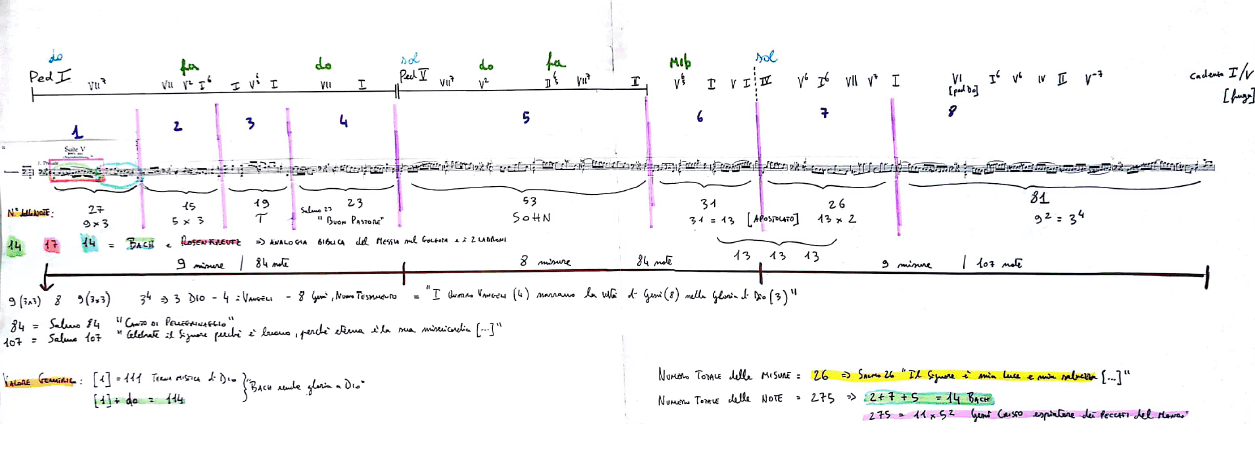 do fa do sol do fa MIb sol
Ped I VII⁷ VII V² I⁶ I V I VII I Ped V VII⁷ V² II VII⁷ I V I V I IV V⁶ I⁶ VII V⁷ I VI I⁶ V⁶ IV II V⁻⁷ cadenza I/V
[ped Do] [fuga]
1 2 3 4 5 6 7 8
Suite V
27 15 19 Salmo 23 23 53 31 26 81
9x3 5x3 T "Buon Pastore" SOHN 31 = 13 [APOSTOLATO] 13x2 9² = 3⁴
N° delle NOTE:
14 17 14 = BACH e ROSENKREUTZ => ANALOGIA BIBLICA del MESSIA sul GOLGOTA e i 2 LADRONI
13 13 13
9 misure | 84 note 8 misure 84 note 9 misure | 107 note
9 (3x3) 8 9 (3x3) 3⁴ => 3 DIO - 4 : VANGELI - 8 Gesù, NUOVO TESTAMENTO = "I QUATTRO VANGELI (4) narrano la vita di Gesù (8) nella Gloria di Dio (3)"
84 = Salmo 84 "CANTO DI PELLEGRINAGGIO"
107 = Salmo 107 "Celebrate il Signore perché è buono, perché eterna è la sua misericordia [...]"
VALORE GEMATRICO: [1] = 111 TRINITÀ MISTICA di DIO
[1] + do = 114
"BACH rende gloria a DIO"
NUMERO TOTALE delle MISURE = 26 => SALMO 26 "Il Signore è mia luce e mia salvezza [...]"
NUMERO TOTALE delle NOTE = 275 => 2+7+5 = 14 BACH
275 = 11 x 5² Gesù CRISTO espiatore dei PECCATI del MONDO"